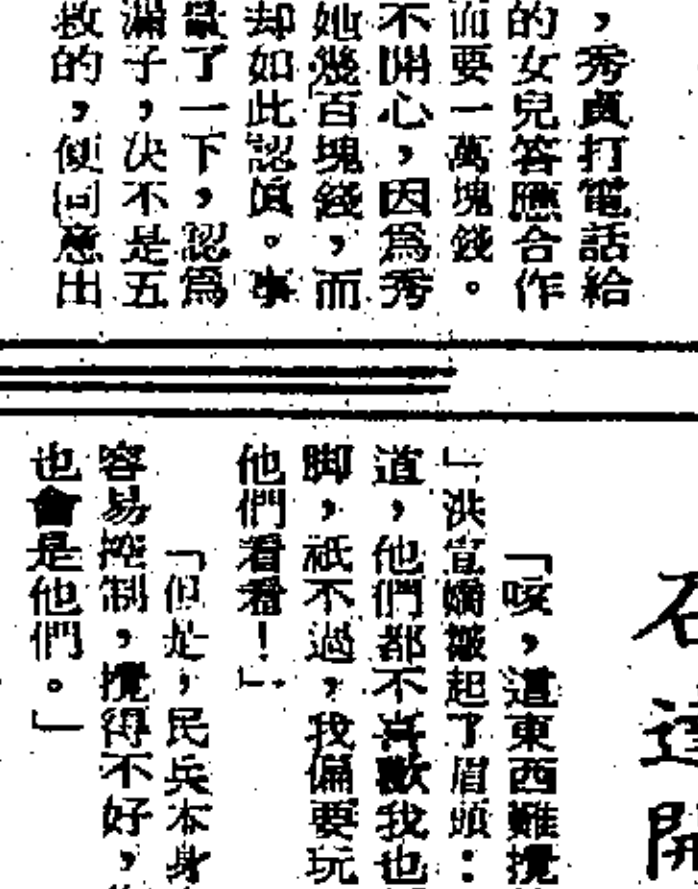 ，秀貞打電話給
的女兒答應合作
而要一萬塊錢。
不開心，因為秀
她幾百塊錢，而
却如此認眞。事
了一下，認為
漏子，决不是五
救的，便同意出
石達開
「咳，這東西難攪
」洪宣嬌皺起了眉頭：
道，他們都不喜歡我也
脚，祇不過，我偏要玩
他們看看！」
「但是，民兵本身
容易控制，攪得不好，
也會是他們。」